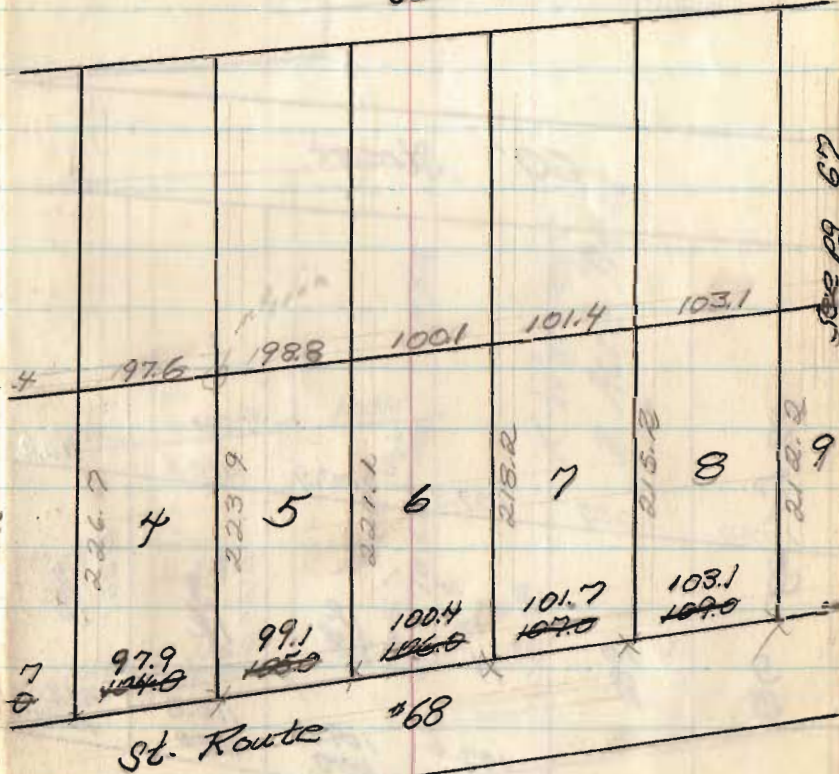 See pg 67
.4 97.6 198.8 100.1 101.4 103.1
226.7 4 223.9 5 221.1 6 218.2 7 215.2 8 212.2 9
7 97.9 99.1 100.4 101.7 103.1
0 104.0 105.0 106.0 107.0 109.0
St. Route #68